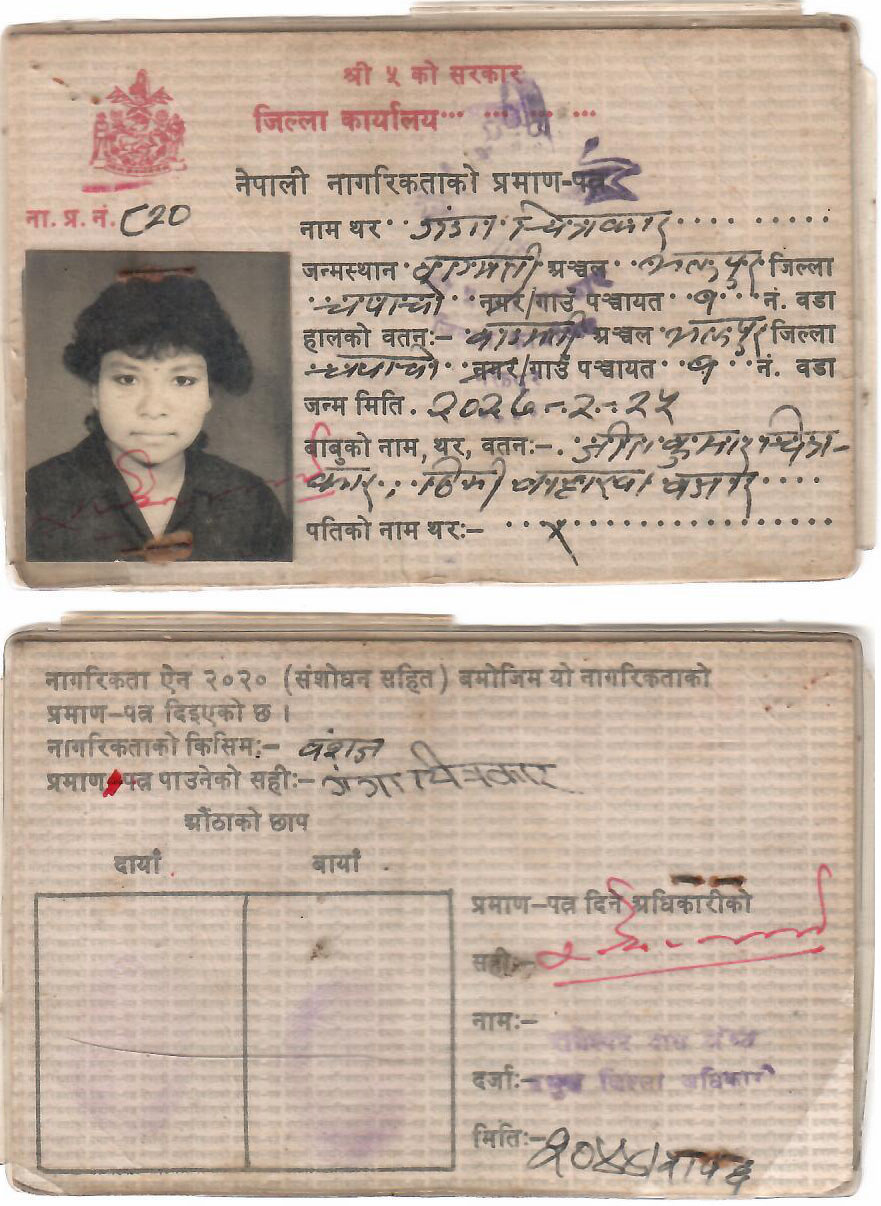 श्री ५ को सरकार
जिल्ला कार्यालय
नेपाली नागरिकताको प्रमाण-पत्र
ना. प्र. नं.
नाम थर चित्रकार
जन्मस्थान वागमती अञ्चल भक्तपुर जिल्ला
नगर/गाउँ पञ्चायत १ नं. वडा
हालको वतनः- वागमती अञ्चल भक्तपुर जिल्ला
नगर/गाउँ पञ्चायत १ नं. वडा
जन्म मिति. २०२६-२-२५
बाबुको नाम, थर, वतनः- कुमार चित्र-
कार
पतिको नाम थरः- x
नागरिकता ऐन २०२० (संशोधन सहित) बमोजिम यो नागरिकताको
प्रमाण-पत्र दिइएको छ ।
नागरिकताको किसिमः- वंशज
प्रमाण-पत्र पाउनेको सहीः- गंगा चित्रकार
औंठाको छाप
दायाँ बायाँ
प्रमाण-पत्र दिने अधिकारीको
सहीः-
नामः-
दर्जाः- प्रमुख जिल्ला अधिकारी
मितिः-